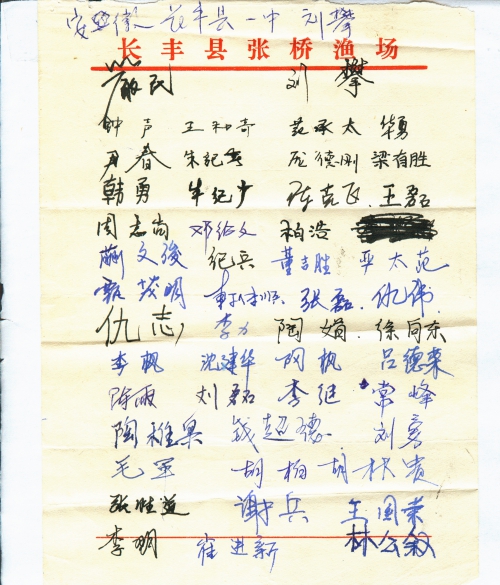 安徽 长丰县一中 刘攀
长丰县张桥渔场
严民 刘攀
钟声 王和奇 范承太 华勇
尹春 朱纪兵 庞德刚 梁有胜
韩勇 朱纪少 陈克飞 王磊
周志尚 邓纪文 柏浩
蒯文俊 纪兵 董吉胜 平太范
甄茂明 张磊 仇伟
仇志 李力 陶娟 徐向东
李帆 沈建华 陶枫 吕德荣
陈雨 刘磊 李继 常峰
陶稚果 钱超德 刘亮
毛罡 胡杨 胡林贵
张胜道 谢兵 王国荣
李明 崔进新 林公叙